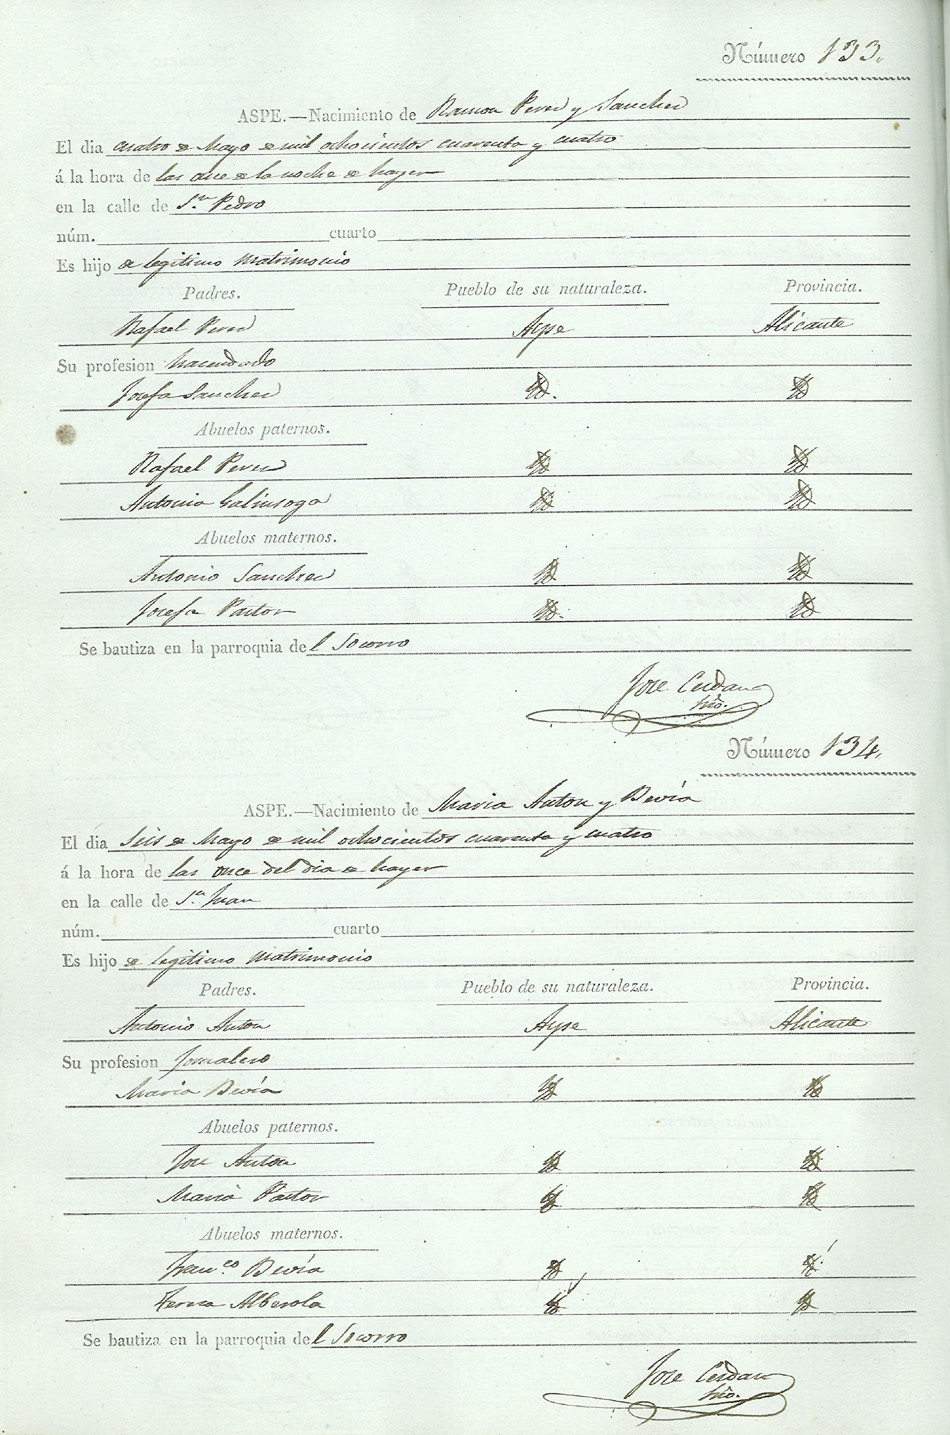 Número 133.
ASPE.—Nacimiento de Ramon Perez y Sanchez
El dia cuatro de Mayo de mil ochocientos cuarenta y cuatro
á la hora de las once de la noche de hayer
en la calle de S.n Pedro
núm. cuarto
Es hijo de legitimo matrimonio
Padres. Pueblo de su naturaleza. Provincia.
Rafael Perez Aspe Alicante
Su profesion hacendado
Josefa Sanchez Yd. Yd
Abuelos paternos.
Rafael Perez Yd Yd
Antonia Galinsoga Yd Yd
Abuelos maternos.
Antonio Sanchez Yd Yd
Josefa Pastor Yd. Yd
Se bautiza en la parroquia del Socorro
Jose Cerdan
Número 134.
ASPE.—Nacimiento de Maria Anton y Bevía
El dia seis de Mayo de mil ochocientos cuarenta y cuatro
á la hora de las once del dia de hayer
en la calle de S.n Juan
núm. cuarto
Es hijo de legitimo matrimonio
Padres. Pueblo de su naturaleza. Provincia.
Antonio Anton Aspe Alicante
Su profesion Jornalero
Maria Bevía Yd Yd
Abuelos paternos.
Jose Anton Yd Yd
Maria Pastor Yd Yd
Abuelos maternos.
Fran.co Bevía Yd Yd
Teresa Alberola Yd Yd
Se bautiza en la parroquia del Socorro
Jose Cerdan